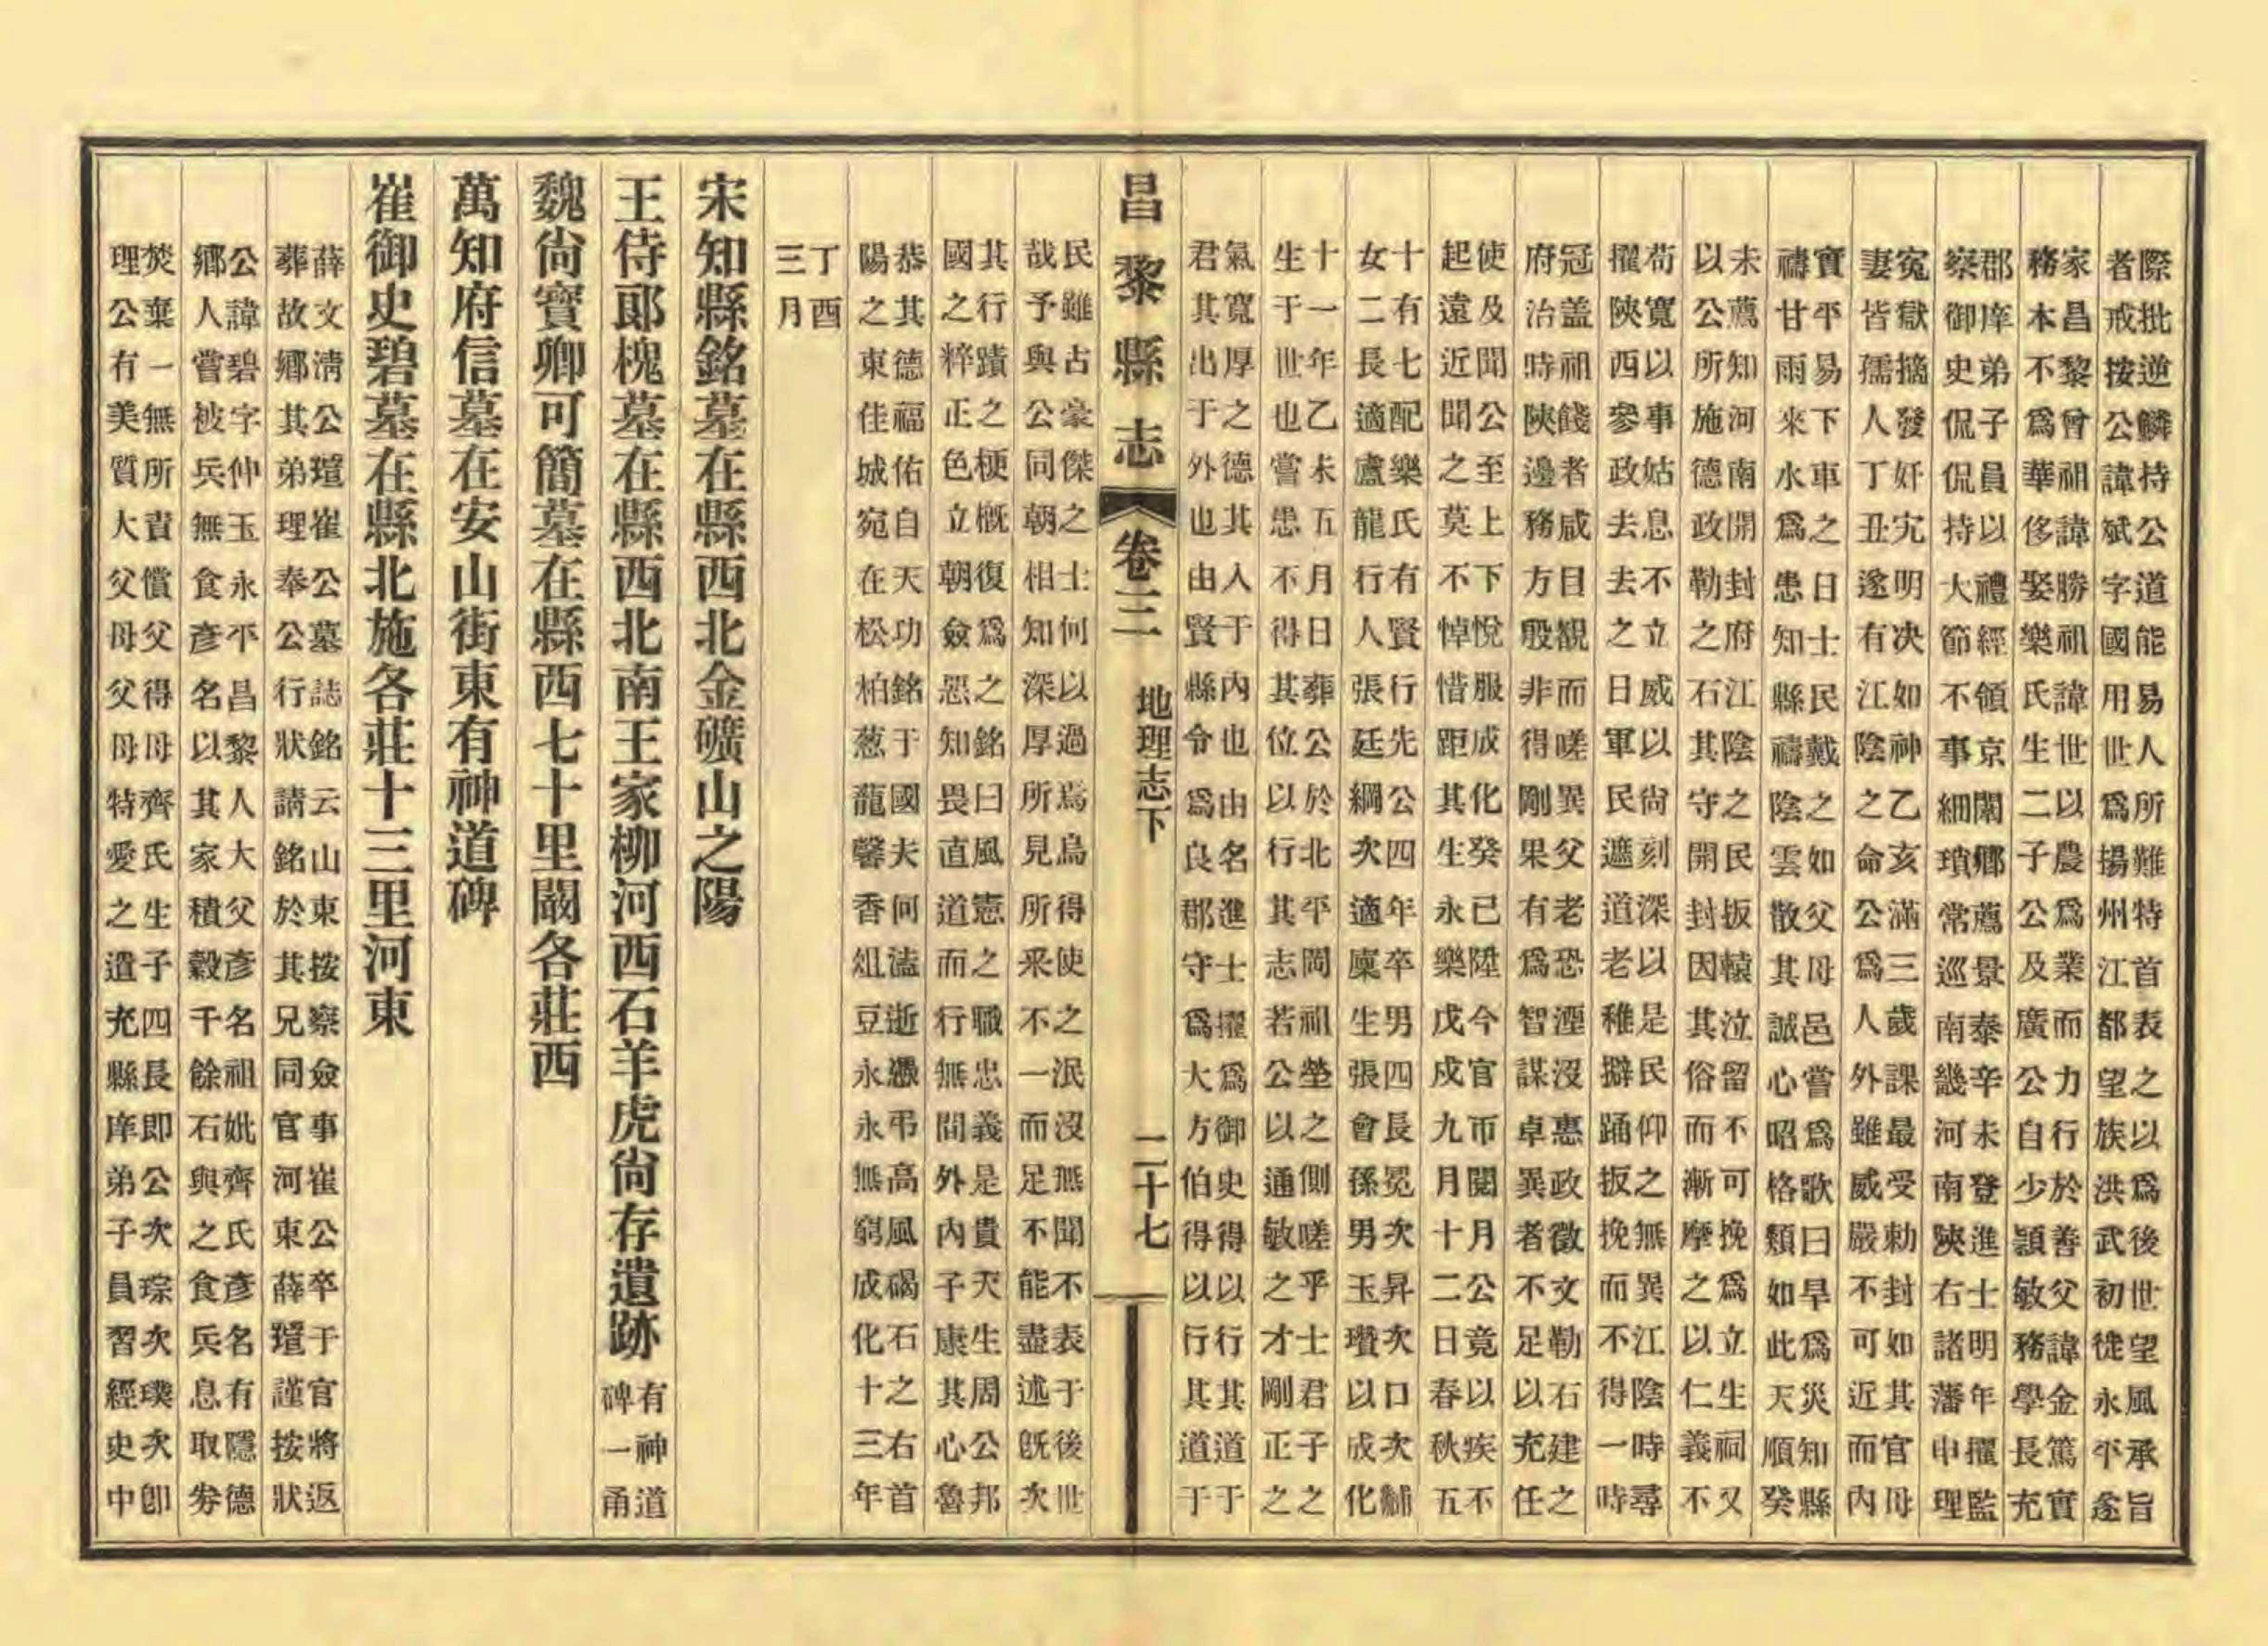 際批逆鱗持公道能易人所難特首表之以爲後世望風承旨
者戒按公諱斌字國用世爲揚州江都望族洪武初徙永平遂
家昌黎曾祖諱勝祖諱世以農爲業而力行於善父諱金篤實
務本不爲華侈娶樂氏生二子公及廣公自少穎敏務學長充
郡庠弟子員以禮經領京闈鄉薦景泰辛未登進士明年擢監
察御史侃侃持大節不事細瑣常巡南畿河南陝右諸藩申理
冤獄摘發奸宄明决如神乙亥滿三歲課最受勅封如其官母
妻皆孺人丁丑遂有江陰之命公爲人外雖威嚴不可近而內
實平易下車之日士民戴之如父母邑嘗爲歌曰旱爲災知縣
禱甘雨來水爲患知縣禱陰雲散其誠心昭格類如此天順癸
未薦知河南開封府江陰之民扳轅泣留不可挽爲立生祠又
以公所施德政勒之石其守開封因其俗而漸摩之以仁義不
苟寬以事姑息不立威以尙刻深以是民仰之無異江陰時尋
擢陝西參政去去之日軍民遮道老稚擗踊扳挽而不得一時
冠盖祖餞者咸目覩而嗟異父老恐湮沒惠政徵文勒石建之
府治時陝邊務方殷非得剛果有爲智謀卓異者不足以充任
使及聞公至上下悅服成化癸已陞今官市閱月公竟以疾不
起遠近聞之莫不悼惜距其生永樂戊戌九月十二日春秋五
十有七配樂氏有賢行先公四年卒男四長冕次昇次口次黼
女二長適盧龍行人張廷綱次適廩生張會孫男玉瓚以成化
十一年乙未五月日葬公於北平岡祖塋之側嗟乎士君子之
生于世也嘗患不得其位以行其志若公以通敏之才剛正之
氣寬厚之德其入于內也由名進士擢爲御史得以行其道于
君其出于外也由賢縣令爲良郡守爲大方伯得以行其道于
昌黎縣志 卷三 地理志下 二十七
民雖古豪傑之士何以過焉烏得使之泯沒無聞不表于後世
哉予與公同朝相知深厚所見所采不一而足不能盡述旣次
其行蹟之梗槪復爲之銘曰風憲之職忠義是貴天生周公邦
國之粹正色立朝僉惡知畏直道而行無間外內子康其心魯
恭其德福佑自天功銘于國夫何溘逝憑弔高風碣石之右首
陽之東佳城宛在松柏葱蘢馨香俎豆永永無窮成化十三年
丁酉
三月
宋知縣銘墓在縣西北金礦山之陽
王侍郞槐墓在縣西北南王家柳河西石羊虎尙存遺跡有神道碑一甬
魏尙寶卿可簡墓在縣西七十里閻各莊西
萬知府信墓在安山街東有神道碑
崔御史碧墓在縣北施各莊十三里河東
薛文淸公瑄崔公墓誌銘云山東按察僉事崔公卒于官將返
葬故鄉其弟理奉公行狀請銘於其兄同官河東薛瑄謹按狀
公諱碧字仲玉永平昌黎人大父彥名祖妣齊氏彥名有隱德
鄉人嘗被兵無食彥名以其家積穀千餘石與之食兵息取券
焚棄一無所責償父得母齊氏生子四長即公次琮次璞次卽
理公有美質大父母父母特愛之遣充縣庠弟子員習經史中